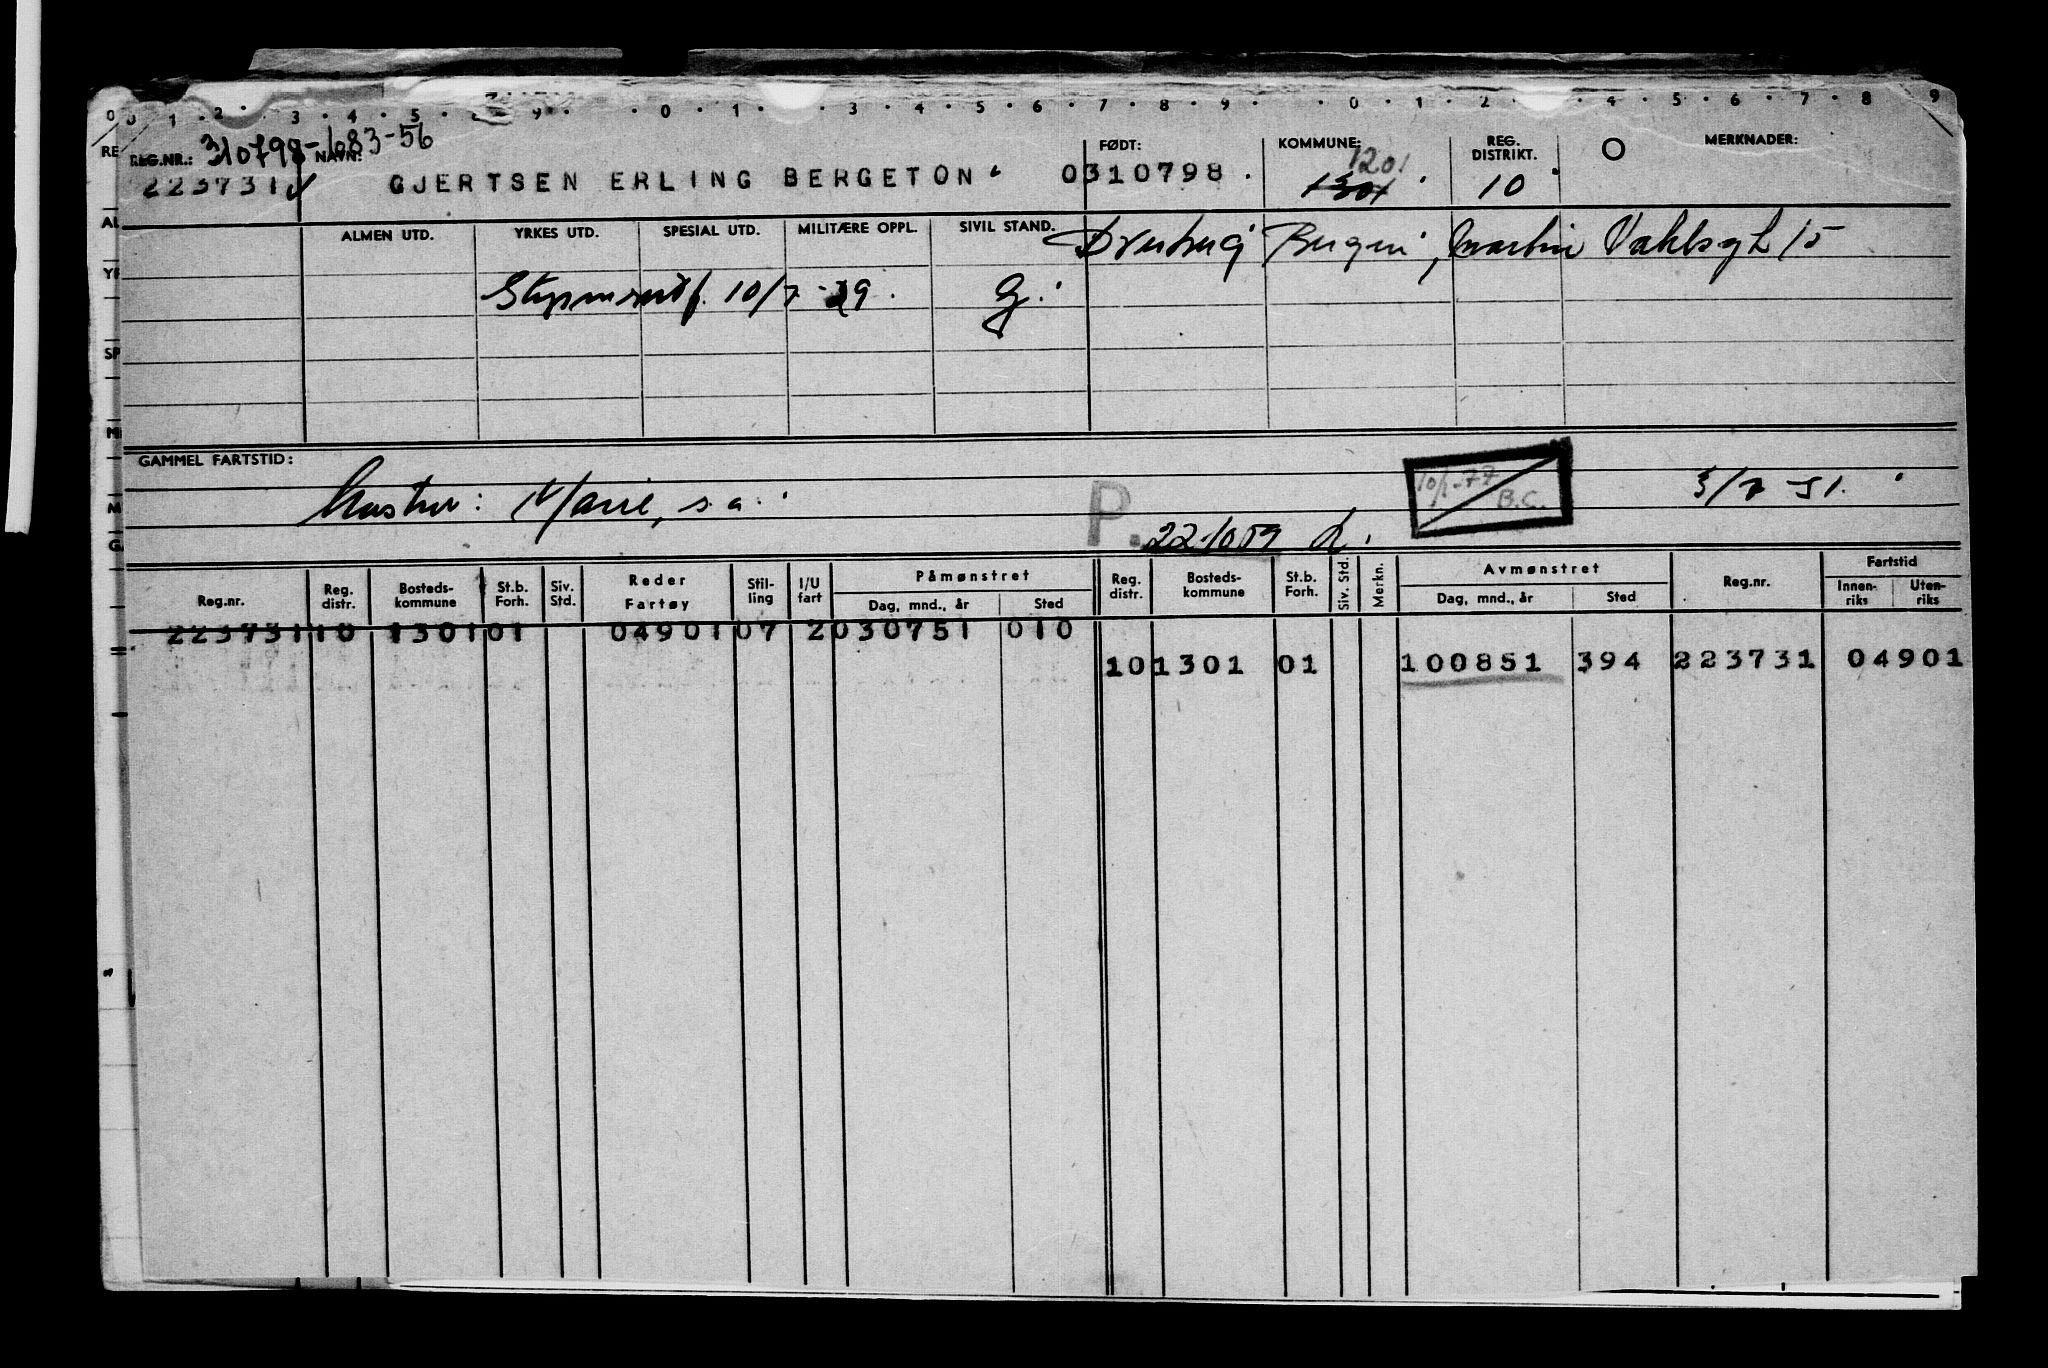 310798-683-56
REG.NR.: NAVN: FØDT: KOMMUNE: REG. DISTRIKT. MERKNADER:
1201
223731 GJERTSEN ERLING BERGETON 0310798 1301 10
ALMEN UTD. YRKES UTD. SPESIAL UTD. MILITÆRE OPPL. SIVIL STAND.
Bergen, Martin Vahlsgt 15
10/7-29. G.
GAMMEL FARTSTID:
Hustru: Marie, s.a. P. 10/1-77 B.C. 3/7-51.
22-10 59
Reg.nr. Reg. distr. Bosteds-kommune St.b. Forh. Siv. Std. Reder Fartøy Stil-ling I/U fart Påmønstret Dag, mnd., år Sted Reg. distr. Bosteds-kommune St.b. Forh. Siv. Std. Merkn. Avmønstret Dag, mnd., år Sted Reg.nr. Fartstid Innen-riks Uten-riks
223731 10 1301 01 04901 07 2 030751 010
10 1301 01 100851 394 223731 04901